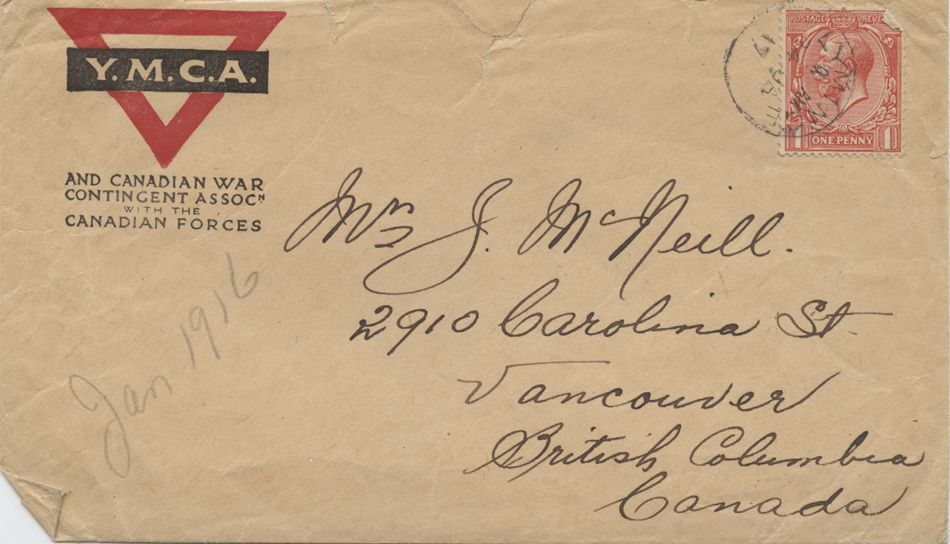 Y.M.C.A.
AND CANADIAN WAR
CONTINGENT ASSOCᴺ
WITH THE
CANADIAN FORCES
POSTAGE REVE
ONE PENNY
1 1
Mrs J. McNeill.
2910 Carolina St
Vancouver
British Columbia
Canada
Jan 1916